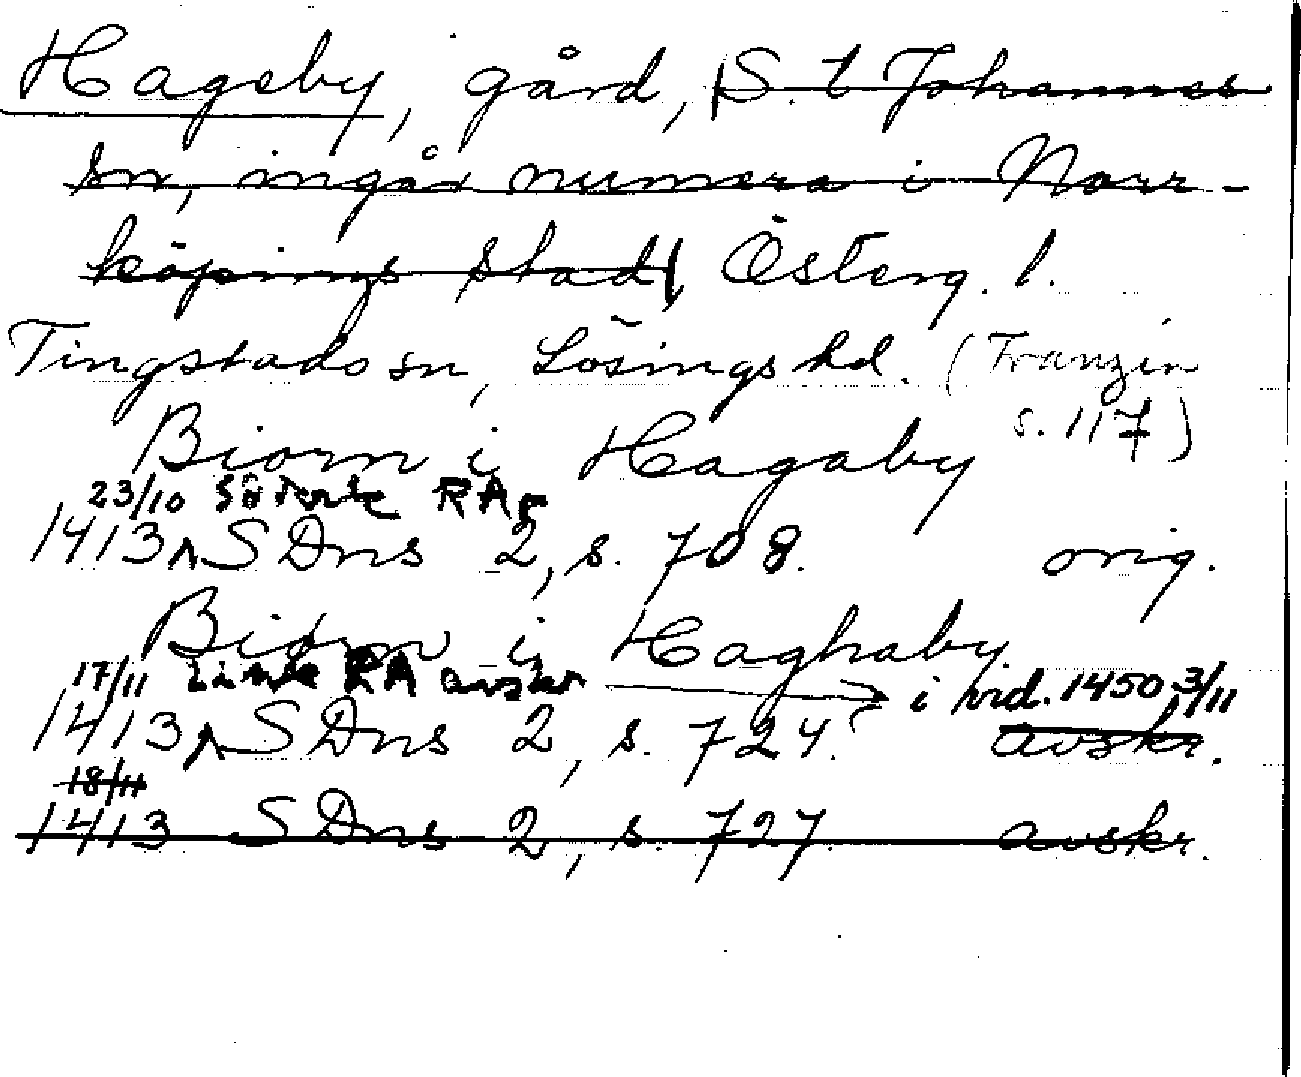 Hageby, gård, |S. t Johannes
sn, ingår numera i Norr-
köpings stad| Österg. l.
Tingstads sn, Lösings hd. (Franzén
s. 117)
Biorn i Hagaby
23/10 RA
1413 SDns 2, s. 708. orig.
Biorn i Haghaby
17/11 RA avskr → i vid. 1450 3/11
1413 SDns 2, s. 724. avskr.
18/11
1413 SDns 2, s. 727. avskr.